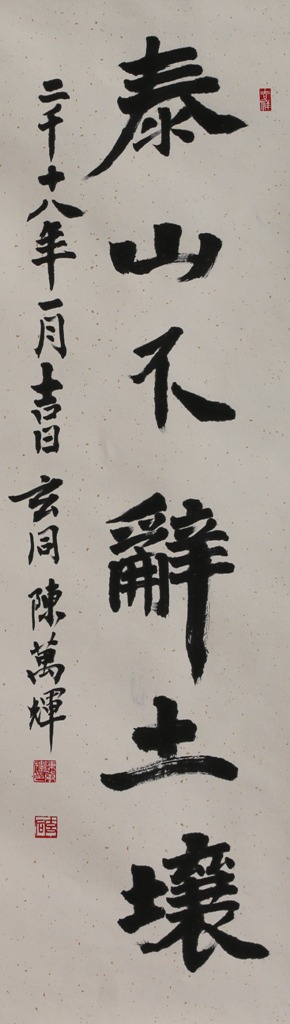 泰山不辭土壤
二千十八年一月吉日 玄同 陳萬輝